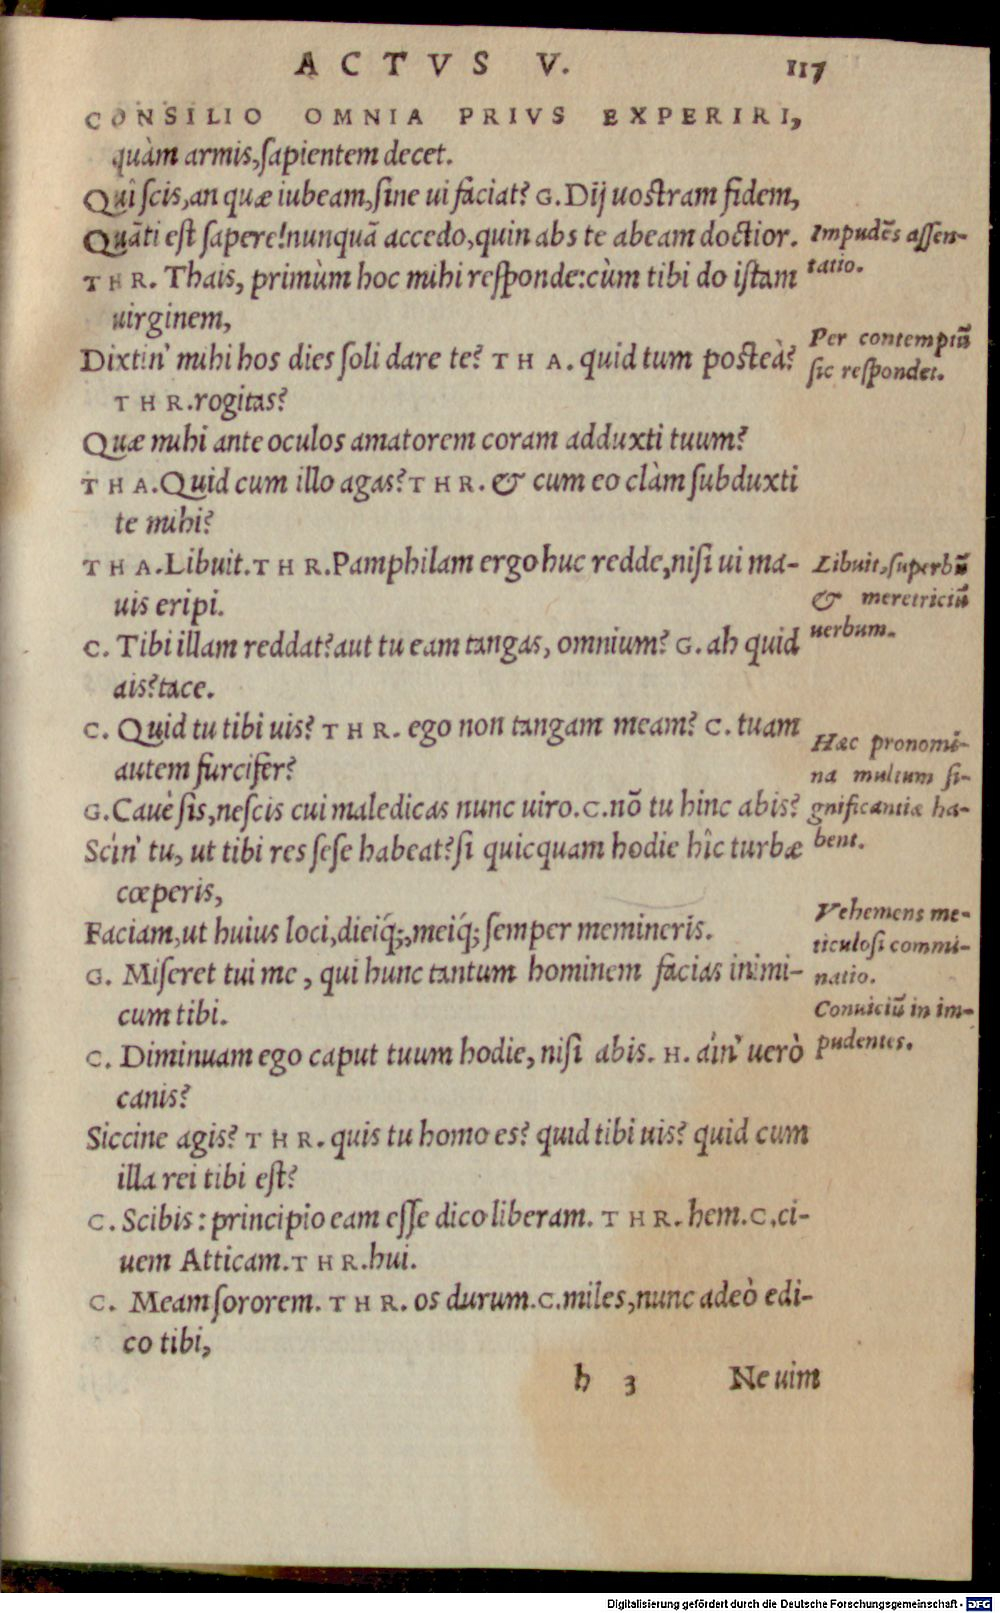 ACTVS V. 117
CONSILIO OMNIA PRIVS EXPERIRI,
quàm armis, ſapientem decet.
Qui ſcis, an quæ iubeam, ſine ui faciat? G. Dij uoſtram fidem,
Quāti eſt ſapere! nunquā accedo, quin abs te abeam doctior.
Impudēs aſſen-
tatio.
THR. Thais, primùm hoc mihi reſponde: cùm tibi do iſtam
uirginem,
Dixtin' mihi hos dies ſoli dare te? THA. quid tum poſteà?
Per contemptū
ſic reſpondet.
THR. rogitas?
Quæ mihi ante oculos amatorem coram adduxti tuum?
THA. Quid cum illo agas? THR. & cum eo clàm ſubduxti
te mihi?
THA. Libuit. THR. Pamphilam ergo huc redde, niſi ui ma-
uis eripi.
Libuit, ſuperbū
& meretriciū
uerbum.
C. Tibi illam reddat? aut tu eam tangas, omnium? G. ah quid
ais? tace.
C. Quid tu tibi uis? THR. ego non tangam meam? C. tuam
autem furcifer?
Hæc pronomi-
na multum ſi-
gnificantiæ ha-
bent.
G. Cauè ſis, neſcis cui maledicas nunc uiro. C. nō tu hinc abis?
Scin' tu, ut tibi res ſeſe habeat? ſi quicquam hodie hîc turbæ
cœperis,
Faciam, ut huius loci, dieiq́;, meiq́; ſemper memineris.
Vehemens me-
ticuloſi commi-
natio.
G. Miſeret tui me, qui hunc tantum hominem facias inimi-
cum tibi.
Conuiciū in im-
pudentes.
C. Diminuam ego caput tuum hodie, niſi abis. H. ain' uerò
canis?
Siccine agis? THR. quis tu homo es? quid tibi uis? quid cum
illa rei tibi eſt?
C. Scibis: principio eam eſſe dico liberam. THR. hem. C. ci-
uem Atticam. THR. hui.
C. Meam ſororem. THR. os durum. C. miles, nunc adeò edi-
co tibi,
h 3 Ne uim
Digitalisierung gefördert durch die Deutsche Forschungsgemeinschaft - DFG